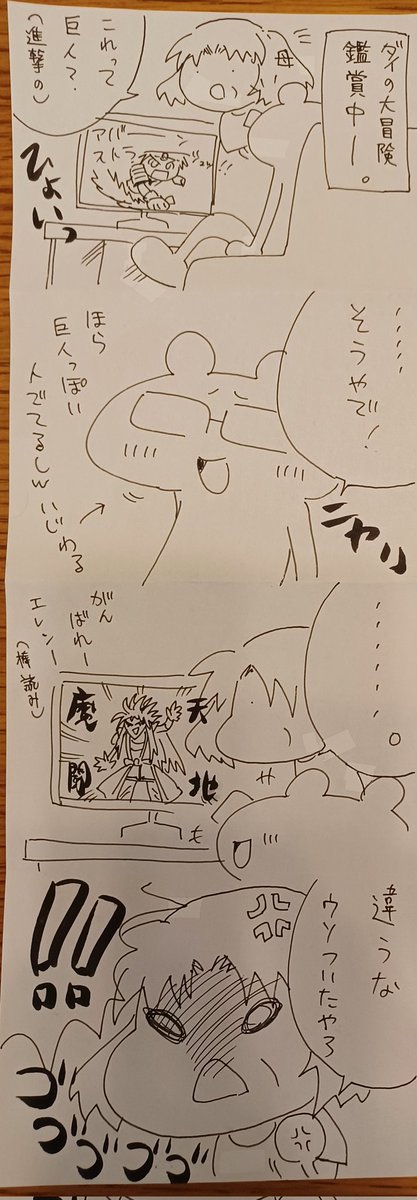 ダイの大冒険
鑑賞中ー。
母
これって
巨人?
(進撃の)
アバン
ストラ
ひょいっ
‥‥‥
そうやで!
ニヤリ
ほら
巨人っぽい
人でてるしw
いじわる
‥‥‥‥。
がん
ばれー
エレンー
(棒読み)
天地
魔闘
も
や
違うな
ウソついたやろ
!!
ゴゴゴゴゴ